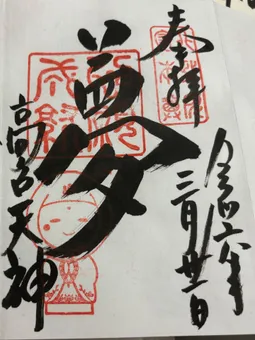 奉拝
令和六年
三月廿一日
夢
高宮天神